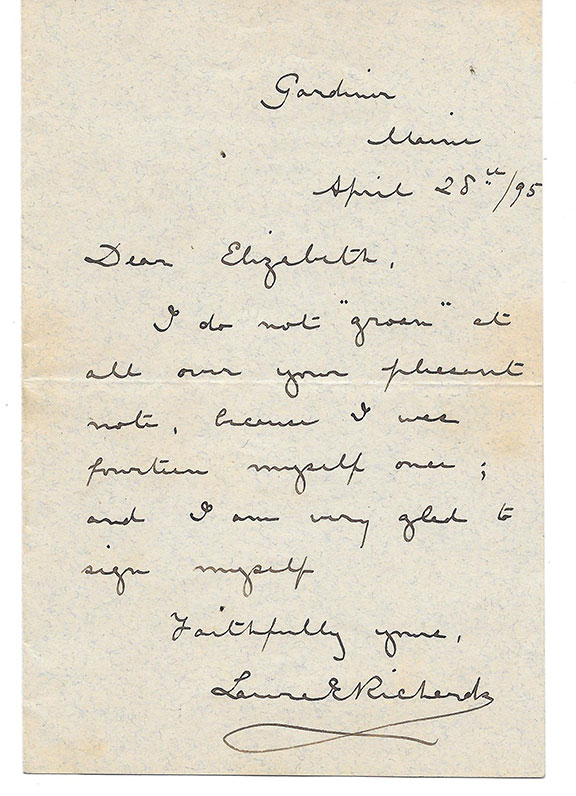 Gardiner
Maine
April 28th/95
Dear Elizabeth,
I do not "groan" at
all over your pleasant
note, because I was
fourteen myself once;
and I am very glad to
sign myself
Faithfully yours,
Laura E Richards